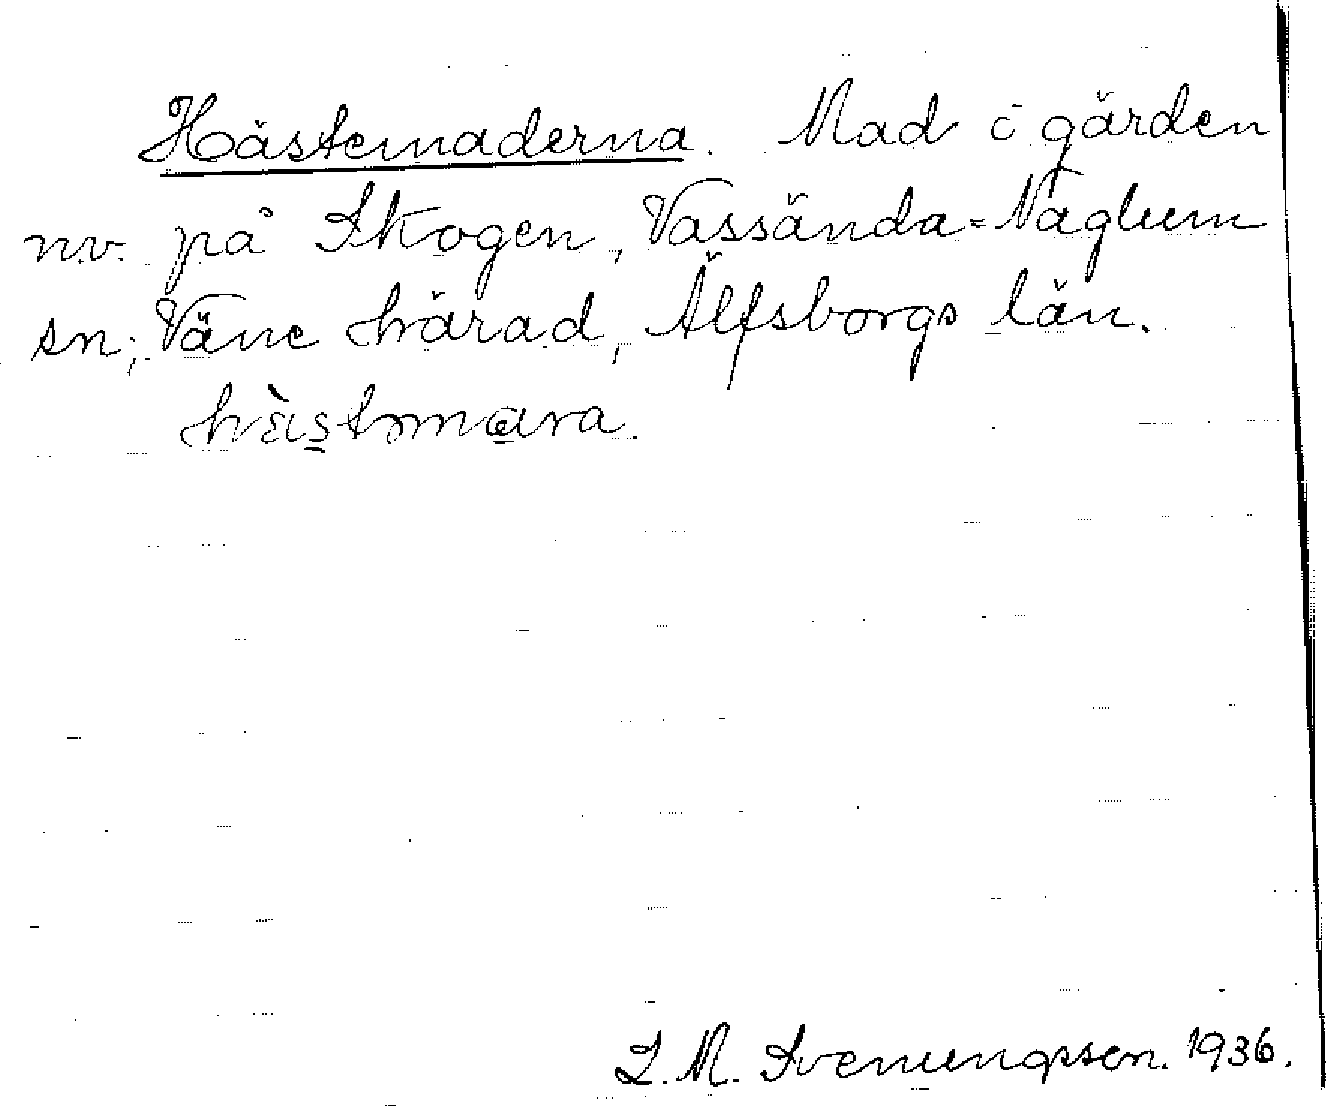 Hästemaderna. Mad i gärden
nv. på Skogen, Vassända-Naglum
sn; Väne härad, Älfsborgs län.
hästmara.
L. M. Svenungsson. 1936.